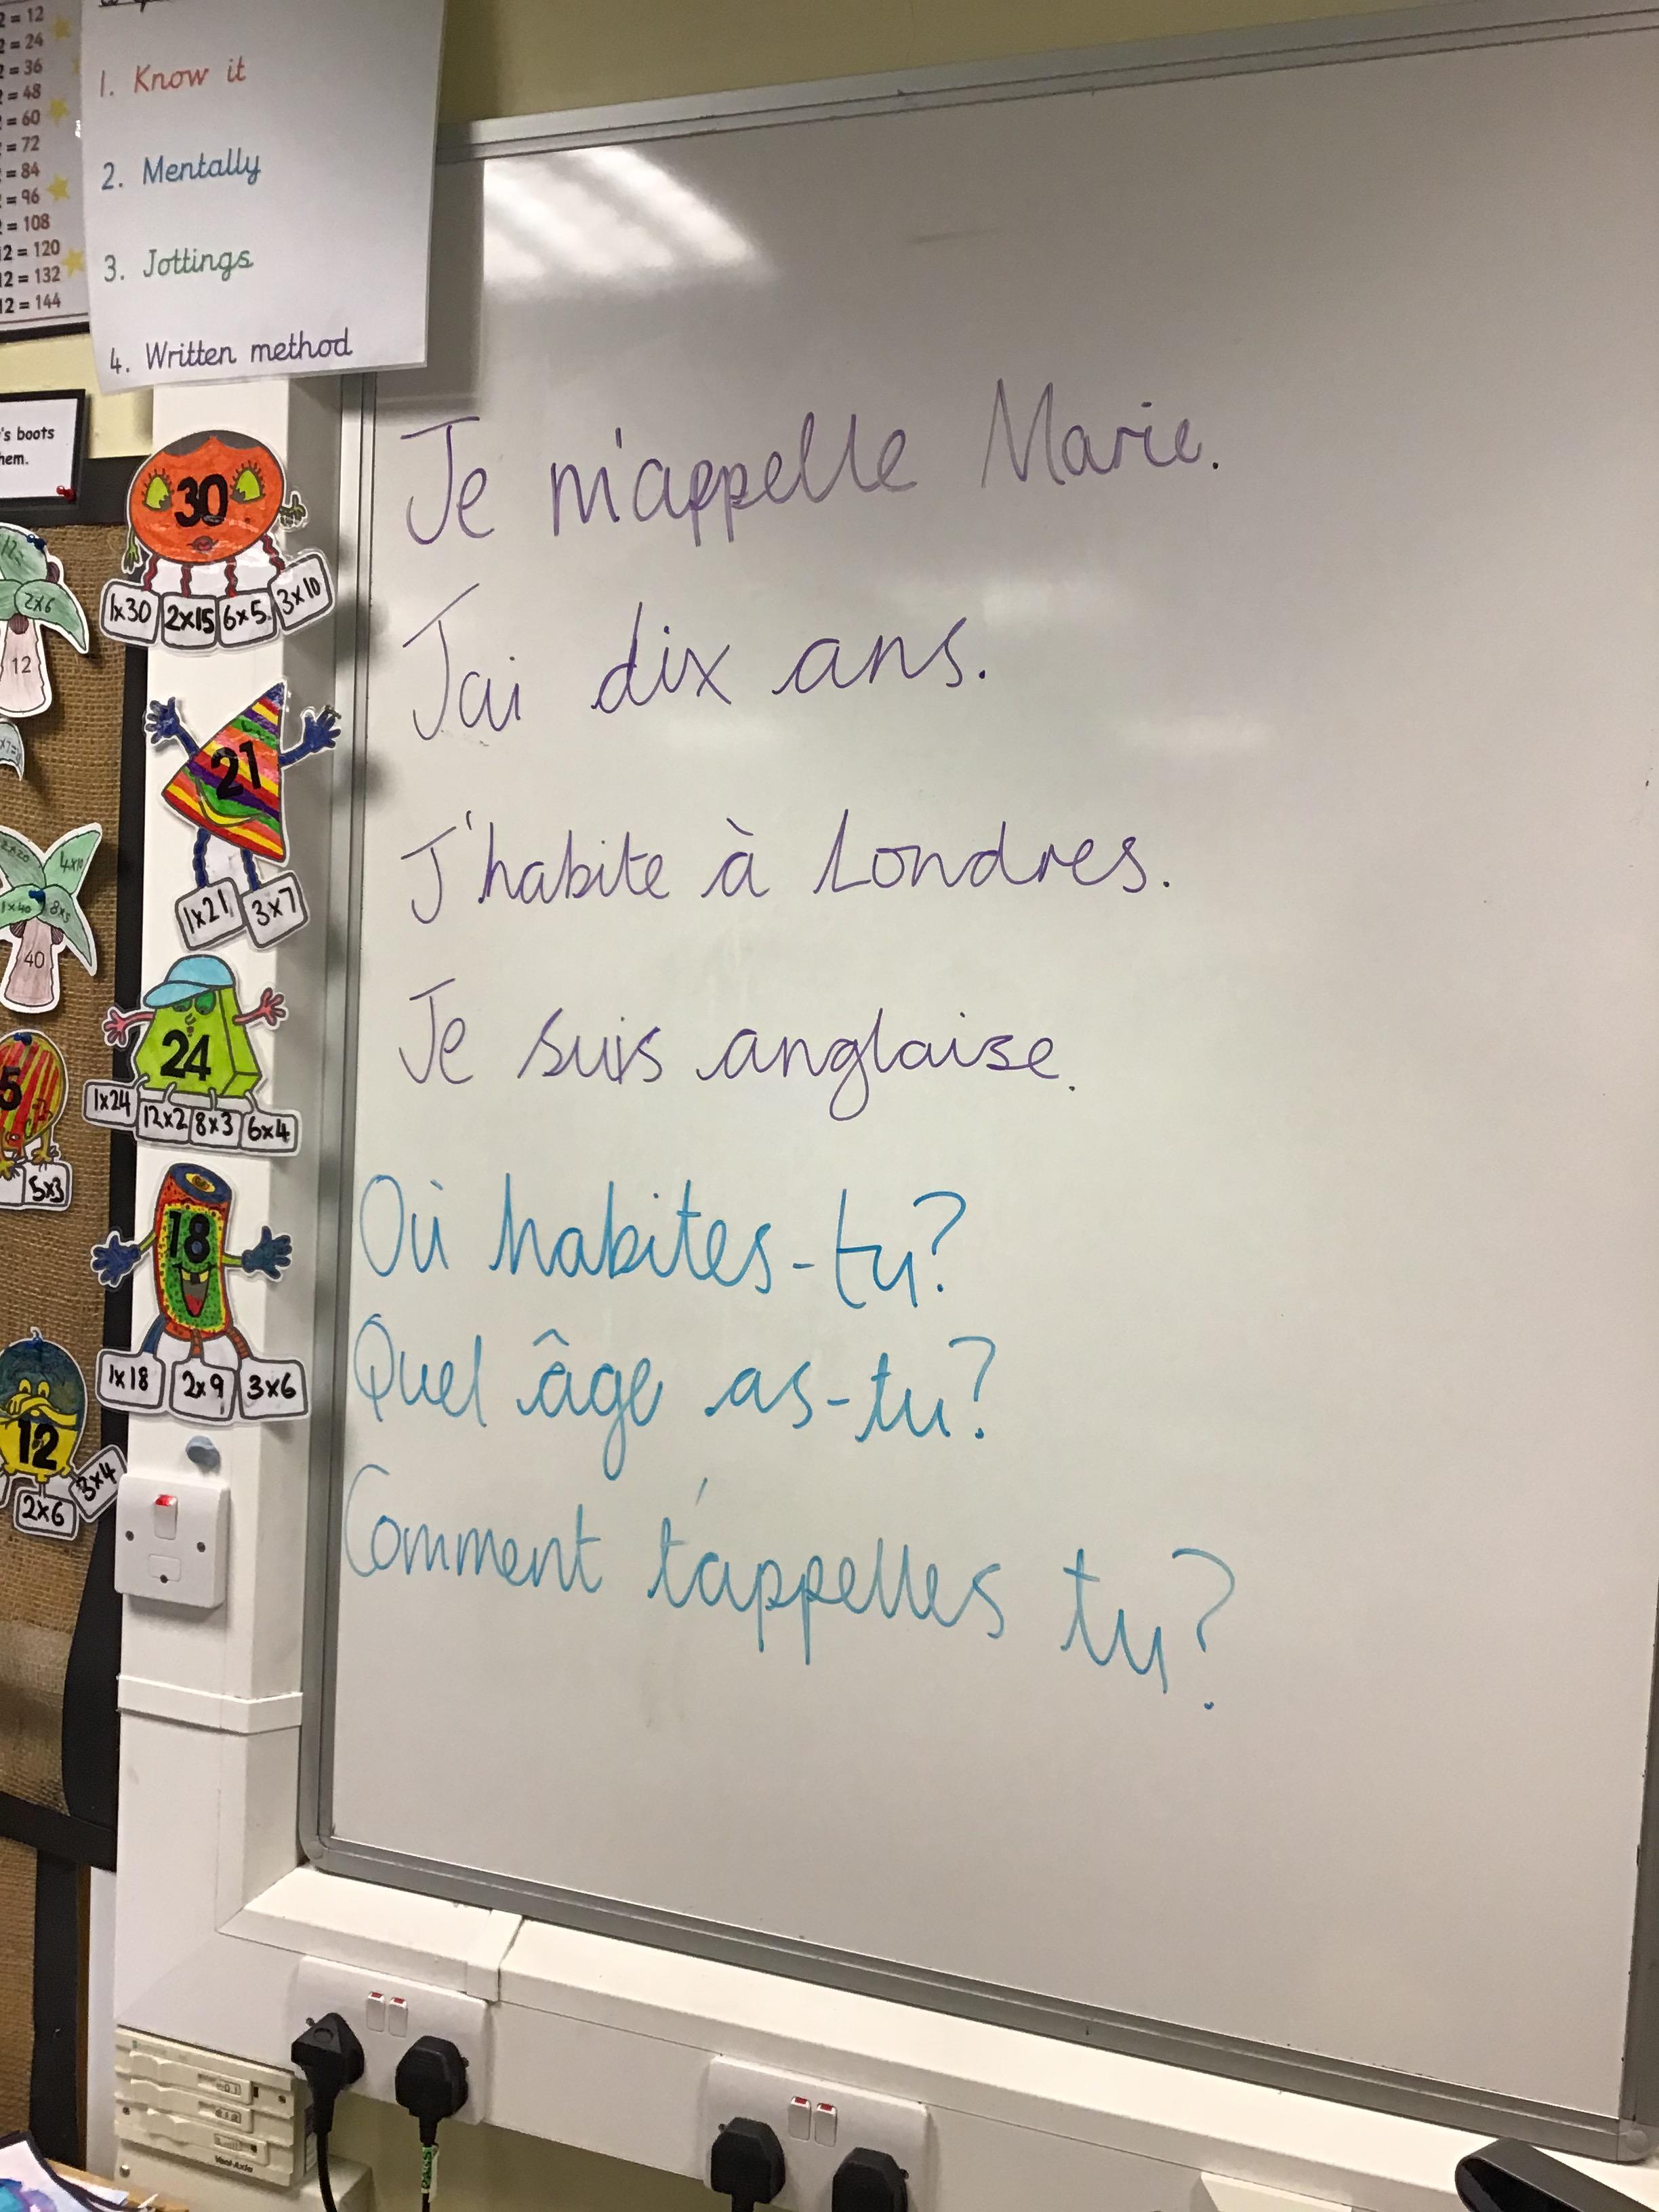 2 = 12
2 = 24
2 = 36
2 = 48
2 = 60
2 = 72
2 = 84
2 = 96
2 = 108
12 = 120
12 = 132
12 = 144
1. Know it
2. Mentally
3. Jottings
4. Written method
's boots
hem.
30
1x30 2x15 6x5 3x10
2x6
12
21
1x21 3x7
4x10
1x40 8x5
40
24
1x24 12x2 8x3 6x4
5
5x3
18
1x18 2x9 3x6
12
2x6 3x4
Je m'appelle Marie.
Jai dix ans.
J'habite à Londres.
Je suis anglaise.
Où habites-tu?
Quel âge as-tu?
Comment t'appelles tu?
Vent-Axia